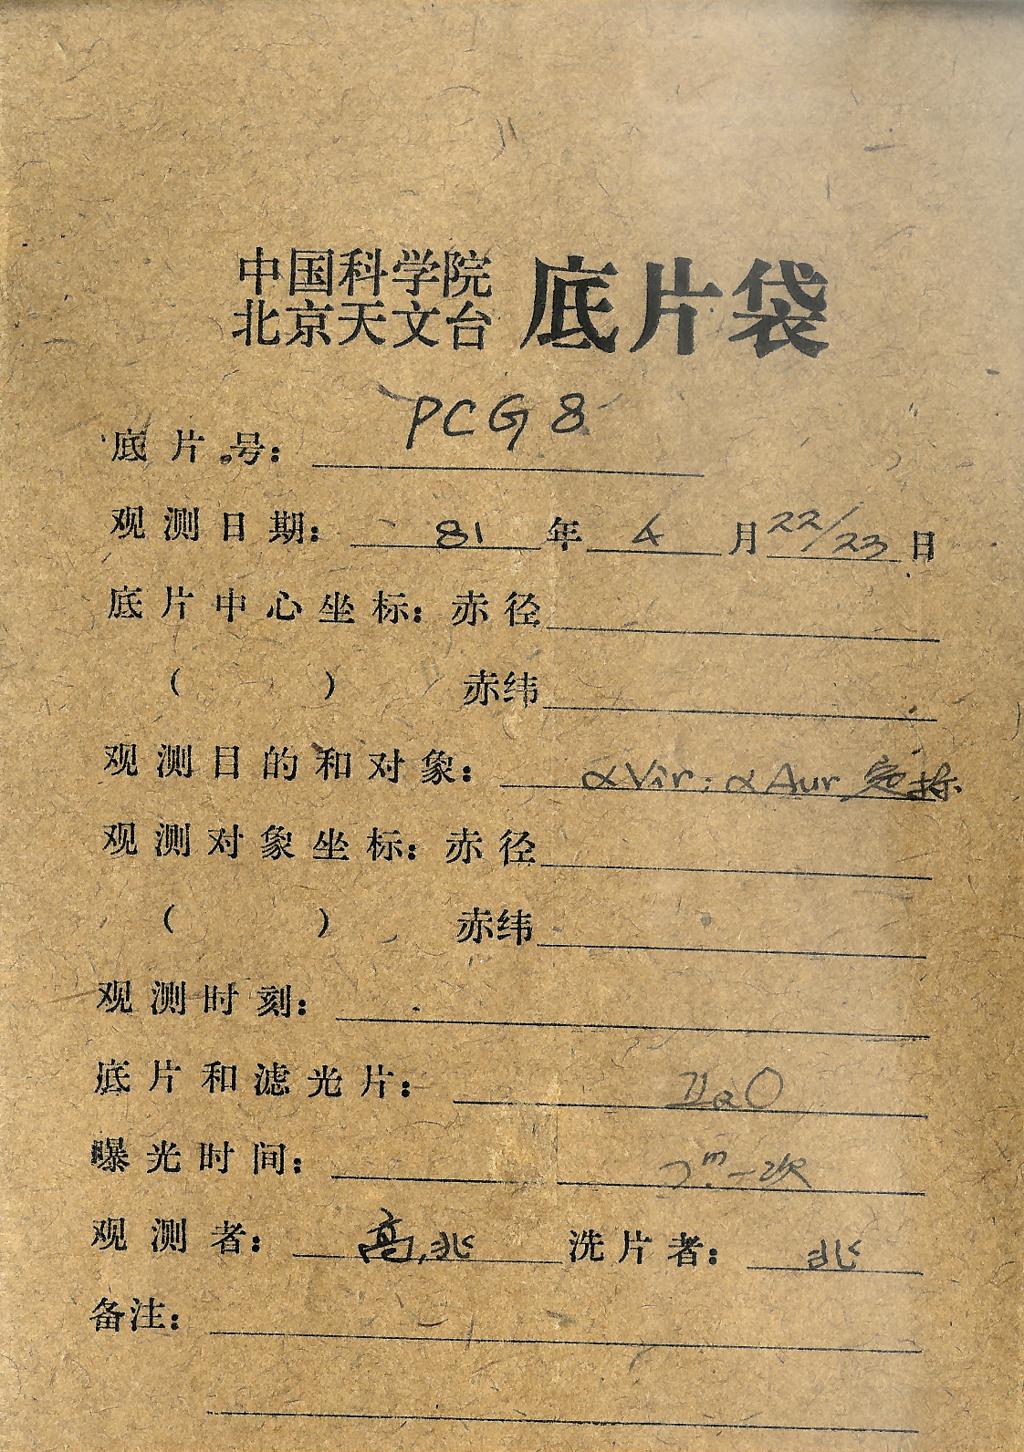 中国科学院
北京天文台 底片袋
底片号: PCG 8
观测日期: 81 年 4 月 22/23 日
底片中心坐标: 赤径
( ) 赤纬
观测目的和对象: αVir; αAur 定标
观测对象坐标: 赤径
( ) 赤纬
观测时刻:
底片和滤光片: IIaO
曝光时间: m 一次
观测者: 高, 兆 洗片者: 兆
备注: